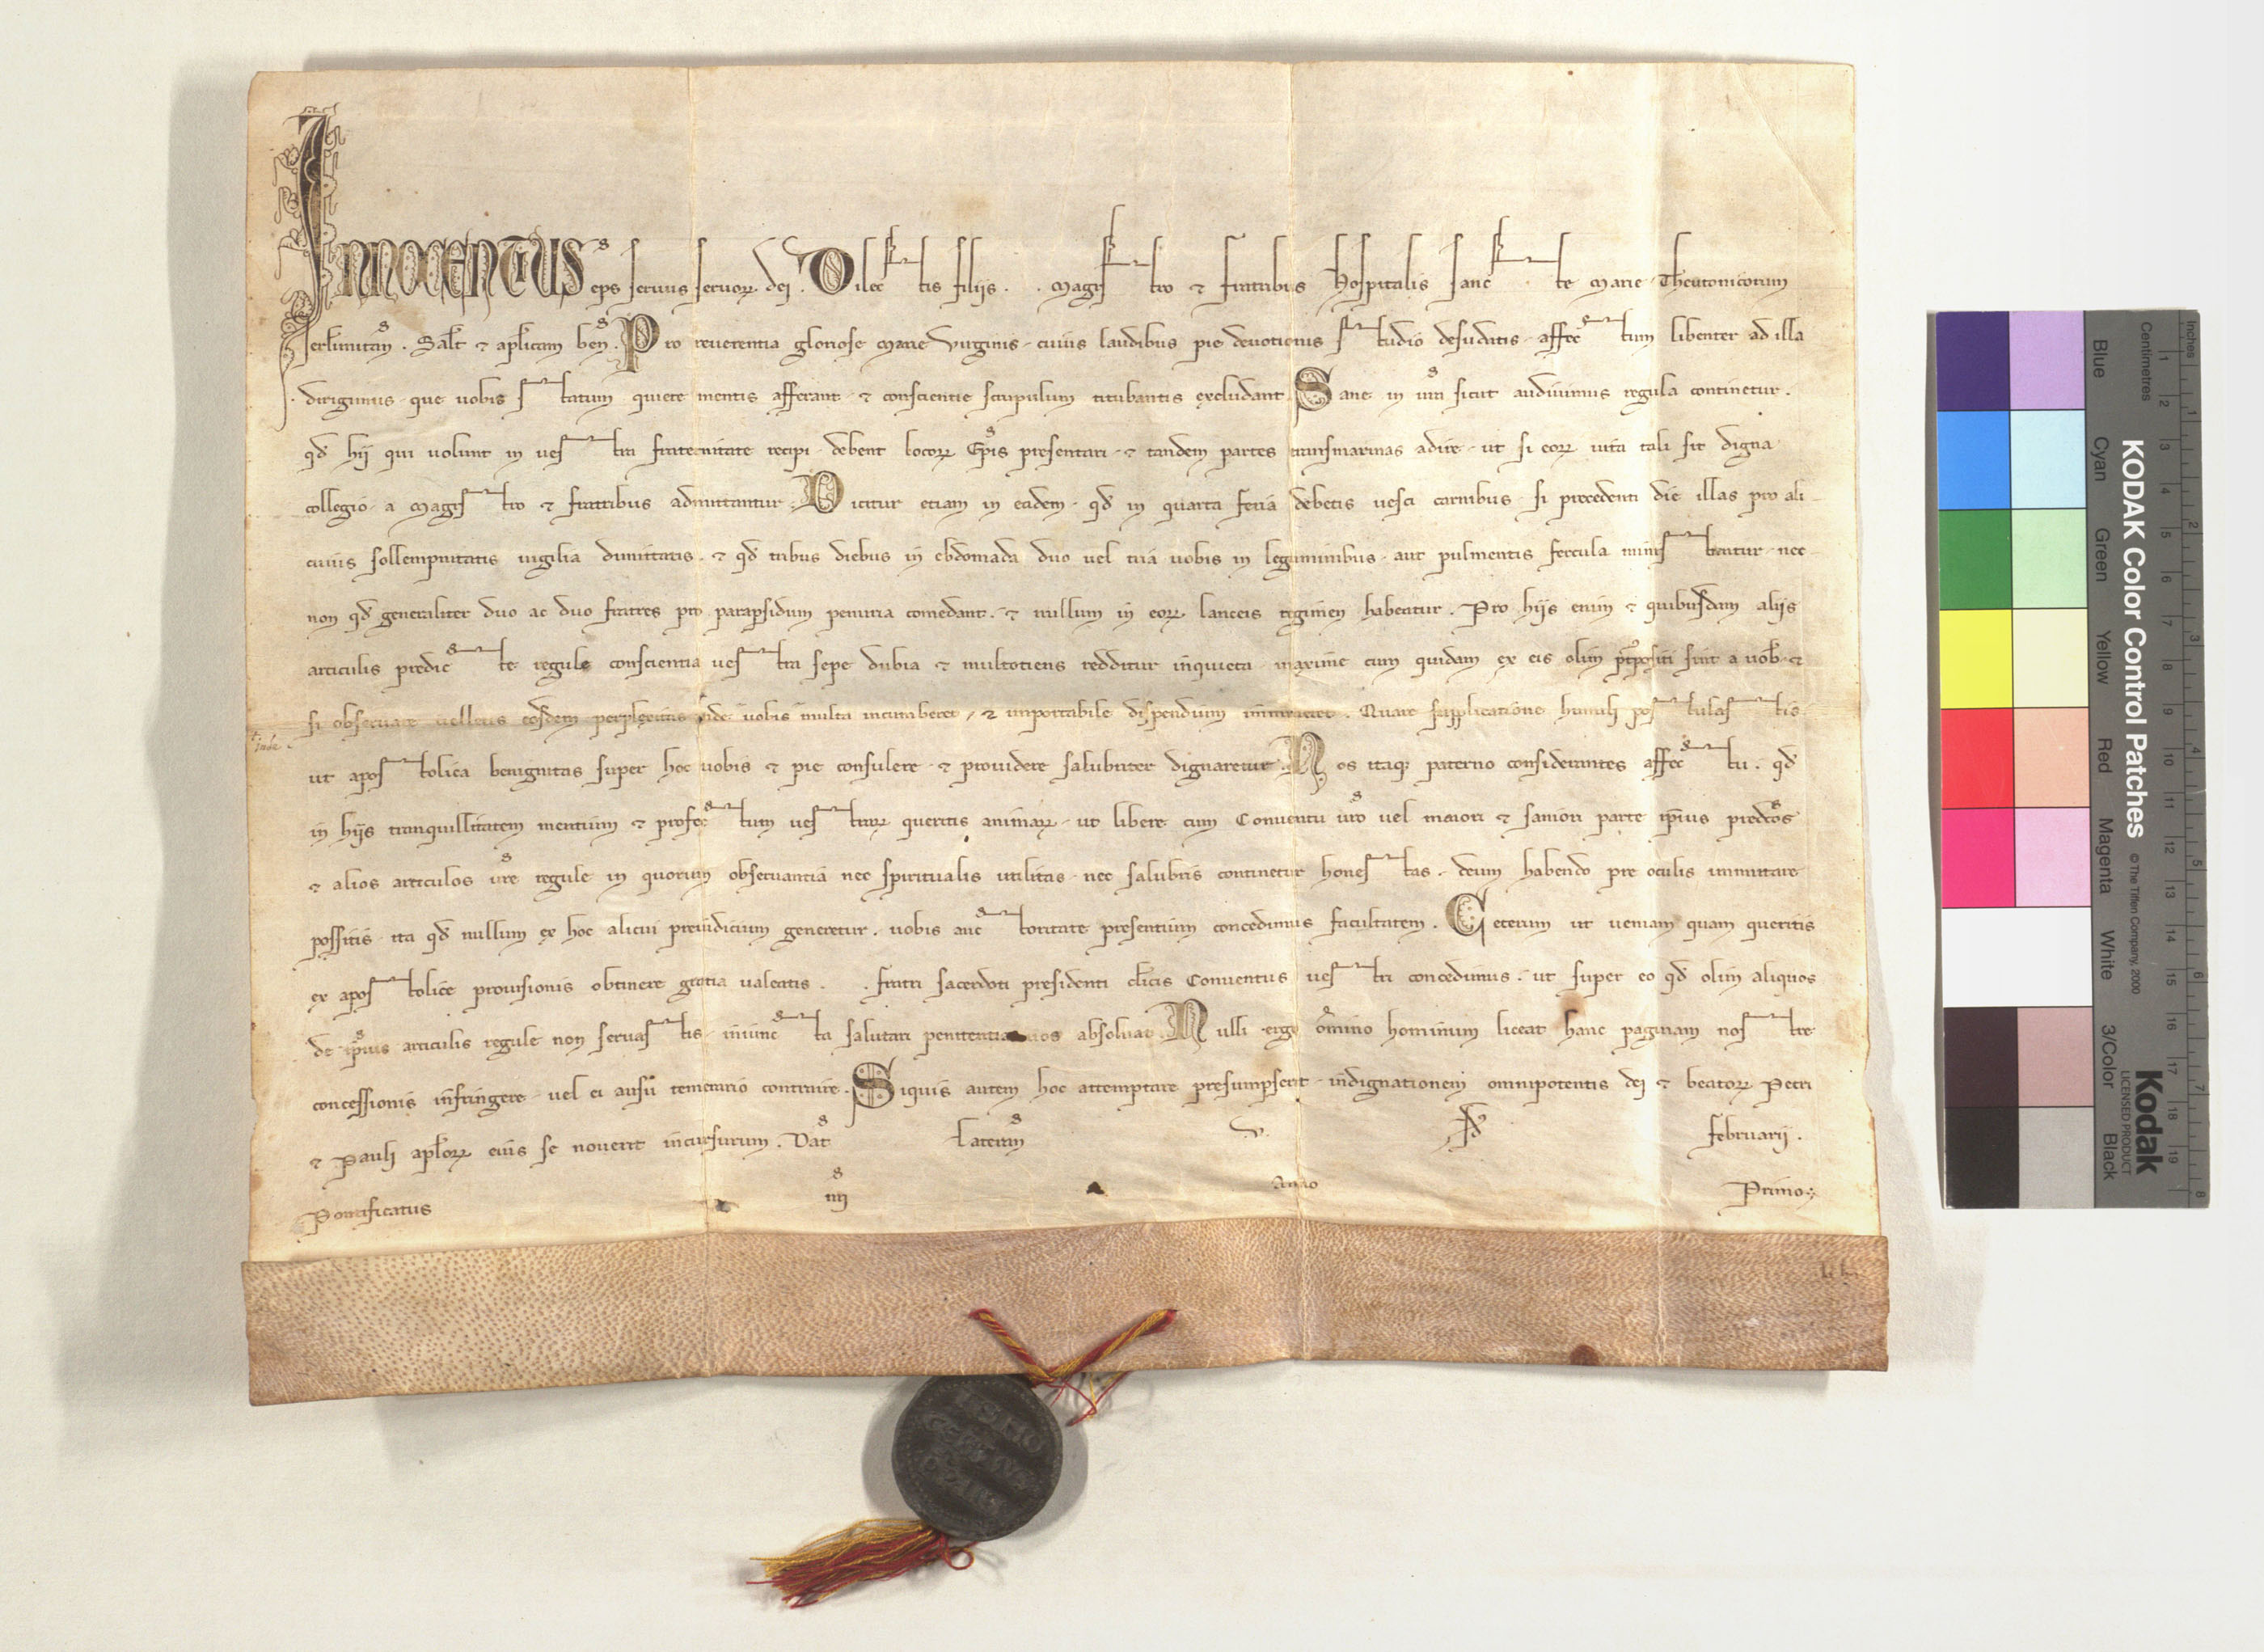 INNOCENTIUS eps servus servor. dei. Dilectis filiis .. Magistro ⁊ fratribus Hospitalis Sancte Marie Theutonicorum
Jerlimitan. Salt ⁊ aplicam ben. Pro reverentia gloriose Marie Virginis, cuius laudibus pie devotionis studio desudatis, affectum libenter ad illa
dirigimus, que vobis statum quiete mentis afferant, ⁊ conscientie scrupulum titubantis excludant. Sane in vra sicut audivimus regula continetur,
qd hij qui volunt in vestra fraternitate recipi, debent locor. Epis presentari, ⁊ tandem partes transmarinas adire, ut si eor. vita tali sit digna
collegio, a Magistro ⁊ fratribus admittantur. Dicitur etiam in eadem, qd in quarta feria debetis vesci carnibus, si precedenti die illas pro ali
cuius sollempnitatis vigilia dimittatis, ⁊ qd tribus diebus in ebdomada duo vel tria vobis in leguminibus, aut pulmentis fercula ministrentur, nec
non qd generaliter duo ac duo fratres pro parapsidum penuria comedant, ⁊ nullum in eor. lanceis tegimen habeatur. Pro hijs enim ⁊ quibusdam alijs
articulis predicte regule conscientia vestra sepe dubia ⁊ multotiens redditur inquieta, maxime cum quidam ex eis olim sint a vob. ⁊
si observare velletis eosdem perplexitas inde vobis multa incumberet, ⁊ importabile dispendium immineret. Quare supplicatione humili postulastis
inde
ut apostolica benignitas super hoc vobis ⁊ pie consulere ⁊ providere salubriter dignaretur. Nos itaq; paterno considerantes affectu, qd
in hijs tranquillitatem mentium ⁊ profectum vestrarum queritis animar., ut libere cum Conventu vro vel maiori ⁊ saniori parte ipius predcos
⁊ alios articulos vre regule in quorum observantia nec spiritualis utilitas, nec salubris continetur honestas, deum habendo pre oculis immutare
possitis, ita qd nullum ex hoc alicui preiudicium generetur, vobis auctoritate presentium concedimus facultatem. Ceterum ut veniam quam queritis
ex apostolice provisionis obtinere gratia valeatis, .. fratri sacerdoti presidenti clicis Conventus vestri concedimus, ut super eo qd olim aliquos
de ipius articulis regule non servastis, iniuncta salutari penitentia vos absolvat. Nulli ergo omino hominum liceat hanc paginam nostre
concessionis infringere, vel ei ausu temerario contraire. Siquis autem hoc attemptare presumpserit, indignationem omnipotentis dei ⁊ beator. Petri
⁊ Pauli aplor. eius se noverit incursurum. Dat Lateran v. Id Februarij.
Pontificatus nri Anno Primo.
KODAK Color Control Patches © The Tiffen Company, 2000
Kodak
LICENSED PRODUCT
Blue Cyan Green Yellow Red Magenta White 3/Color Black
Centimetres 1 2 3 4 5 6 7 8 9 10 11 12 13 14 15 16 17 18 19
Inches 1 2 3 4 5 6 7 8